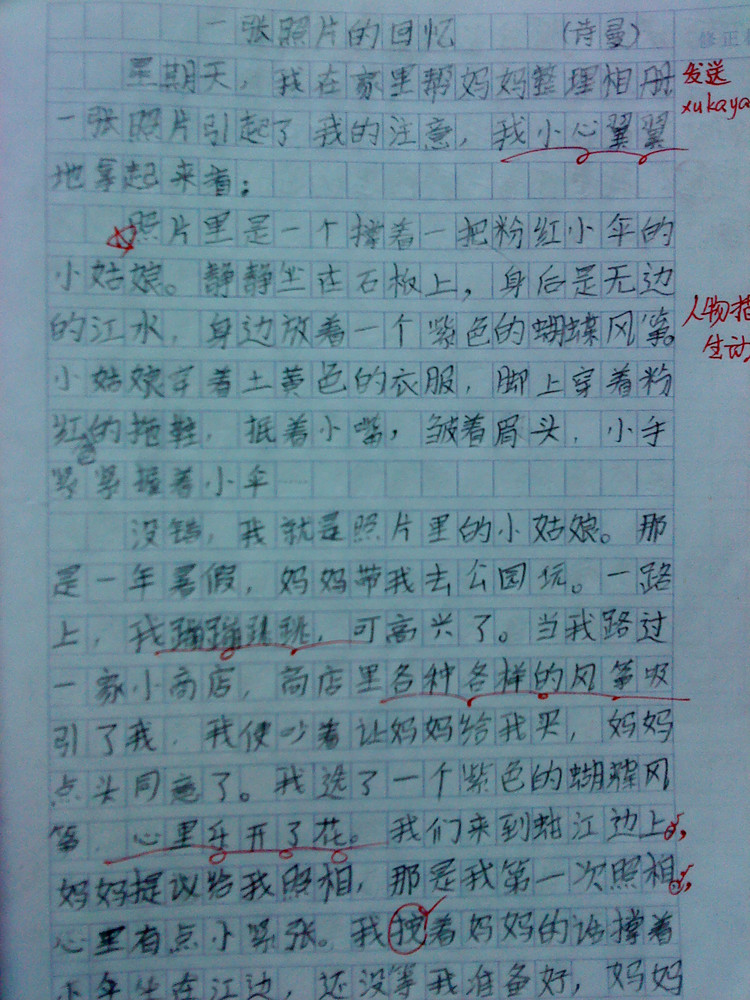 一张照片的回忆 （诗曼）
修正
星期天，我在家里帮妈妈整理相册
发送
xukaya
一张照片引起了我的注意，我小心翼翼
地拿起来看：
照片里是一个撑着一把粉红小伞的
小姑娘。静静坐在石板上，身后是无边
的江水，身边放着一个紫色的蝴蝶风筝。
人物描
生动
小姑娘穿着土黄色的衣服，脚上穿着粉
红的拖鞋，抿着小嘴，皱着眉头，小手
紧紧握着小伞……
没错，我就是照片里的小姑娘。那
是一年暑假，妈妈带我去公园玩。一路
上，我蹦蹦跳跳，可高兴了。当我路过
一家小商店，商店里各种各样的风筝吸
引了我，我便吵着让妈妈给我买，妈妈
点头同意了。我选了一个紫色的蝴蝶风
筝，心里乐开了花。我们来到江边上，
妈妈提议给我照相，那是我第一次照相，
心里有点小紧张。我按着妈妈的话撑着
小伞坐在江边，还没等我准备好，妈妈